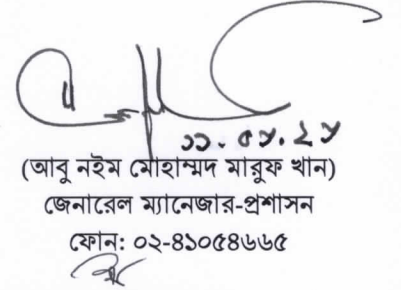 (আবু নইম মোহাম্মদ মারুফ খান)
জেনারেল ম্যানেজার-প্রশাসন
ফোন: ০২-৪১০৫৪৬৬৫